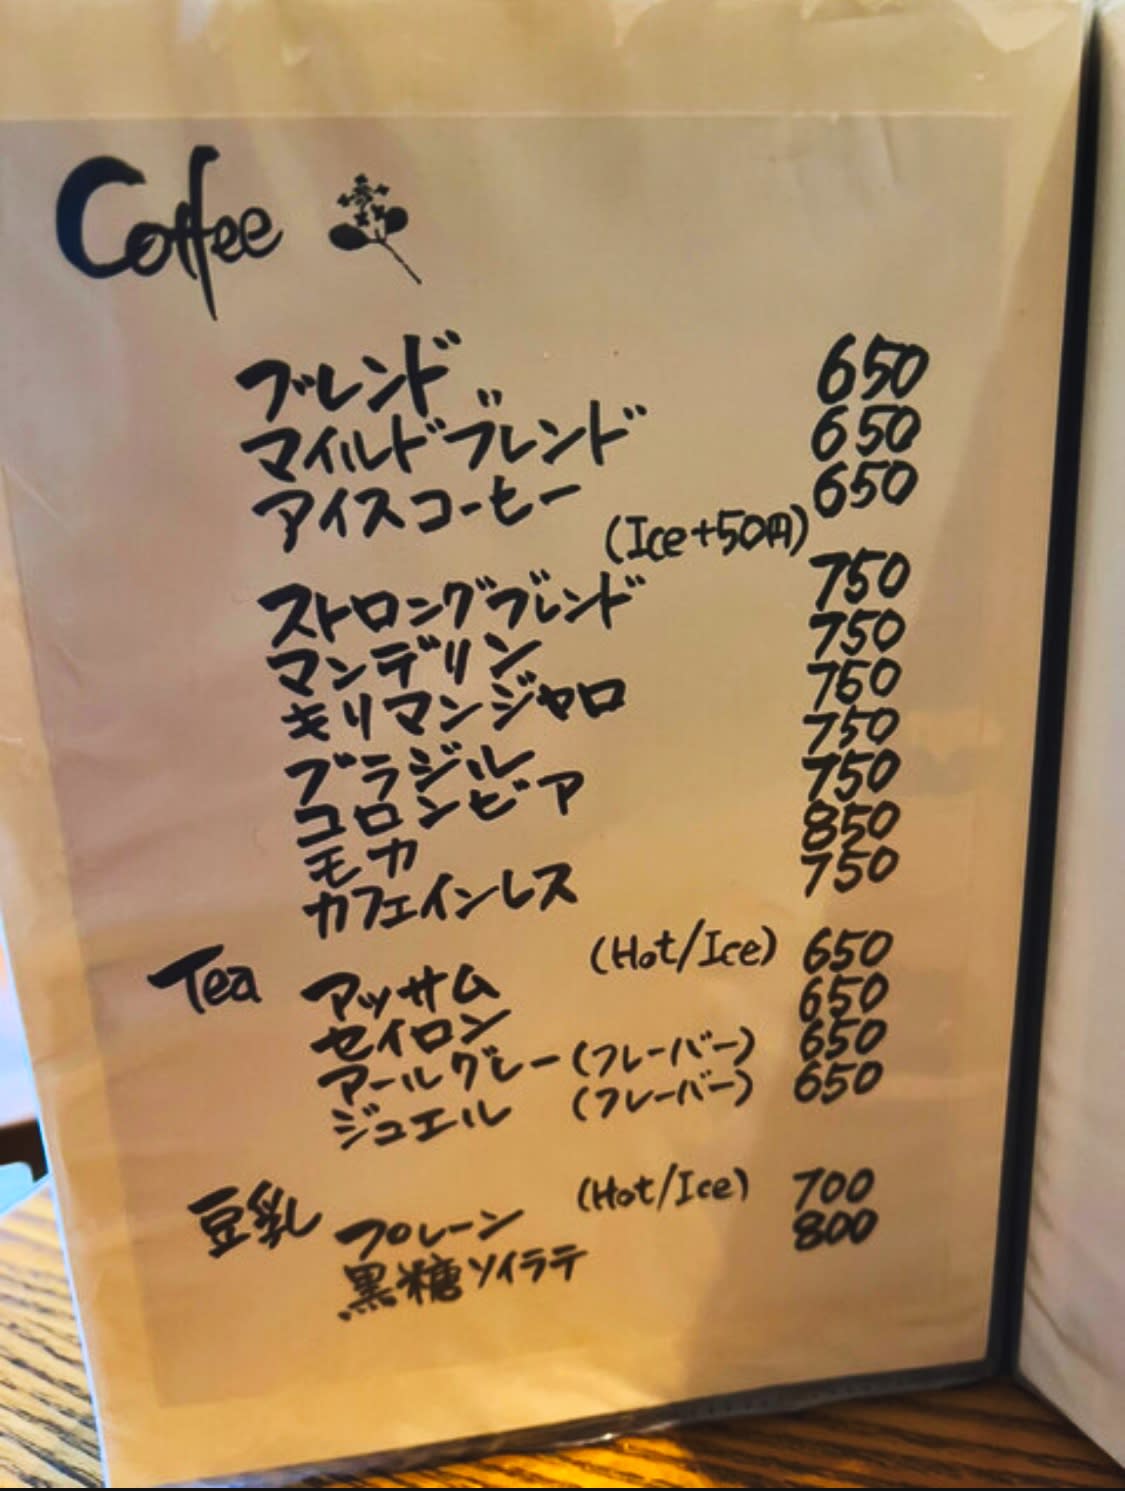 Coffee
ブレンド 650
マイルドブレンド 650
アイスコーヒー 650
(Ice+50円)
ストロングブレンド 750
マンデリン 750
キリマンジャロ 750
ブラジル 750
コロンビア 750
モカ 850
カフェインレス 750
Tea (Hot/Ice)
アッサム 650
セイロン 650
アールグレー (フレーバー) 650
ジュエル (フレーバー) 650
豆乳 (Hot/Ice)
プレーン 700
黒糖ソイラテ 800